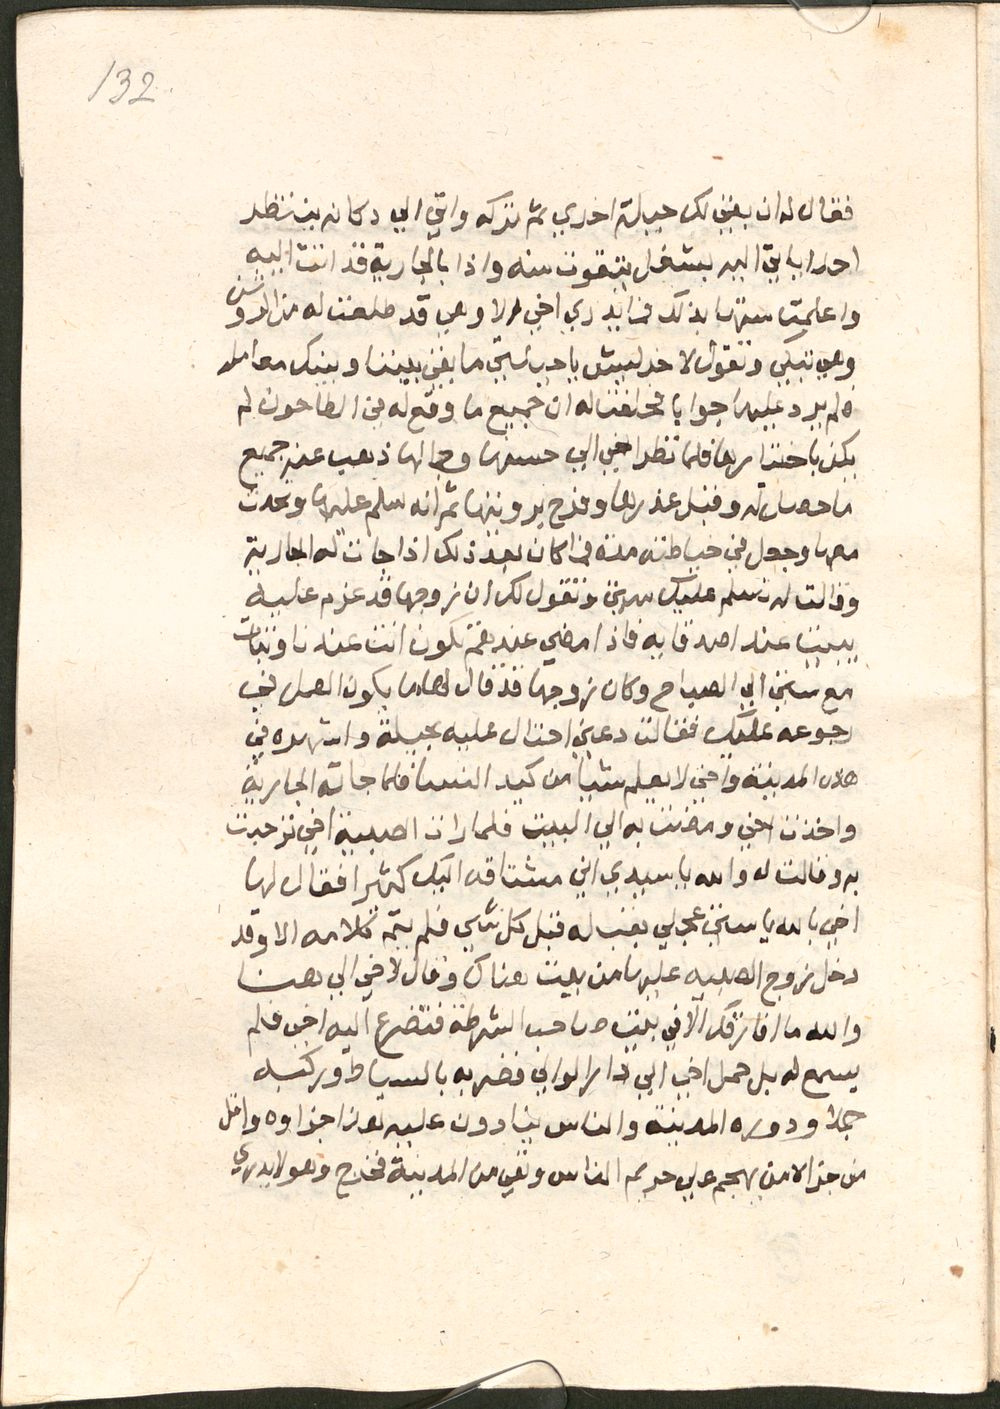 132
فقال له ان بقي لك حيلة اخري ثم تركه واتي الي دكانه ينتظر
احدا ياتي اليه بشغل يتقوت منه واذا بالجارية قد اتت اليه
واعلمت ستها بذلك فما يدري اخي الا وهي قد طلعت له من الروشن
وهي تبكي وتقول لاخي ليش يا حبيبي ما بقي بيننا وبينك معامله
فلم يرد عليها جوابا فحلفت له ان جميع ما وقع له في الطاحون لم
يكن باختيارها فلما نظر اخي الي حسنها وجمالها ذهب عنه جميع
ما حصل له وقبل عذرها وفرح برويتها ثم انه سلم عليها وتحدث
معها وجعل في خياطته مدة فما كان بعد ذلك اذا جات له الجارية
وقالت له تسلم عليك ستي وتقول لك ان زوجها قد عزم علي
يبيت عند اصدقايه فاذا مضي عندهم تكون انت عندنا وتبات
مع ستي الي الصباح وكان زوجها قد قال لها ما يكون العمل في
رجوعه عليك فقالت دعني احتال عليه بحيلة واشهره في
هذه المدينة واخي لا يعلم شيا من كيد النسا فلما جاته الجارية
واخذت اخي ومضت به الي البيت فلما رات الصبية اخي ترحبت
به وقالت له والله يا سيدي اني مشتاقه اليك كثيرا فقال لها
اخي بالله يا ستي عجلي بقبله قبل كل شي فلم يتم كلامه الا وقد
دخل زوج الصبيه عليها من بيت هناك وقال لاخي الي هنا
والله ما افارقك الا في بيت صاحب الشرطة فتضرع اليه اخي فلم
يسمع له بل حمل اخي الي دار الوالي فضربه بالسياط وركبه
جملا ودوره المدينة والناس ينادون عليه هذا جزاوه واقل
من جزا الا من يهجم علي حريم الناس ونفي من المدينة فخرج وهو لا يدري